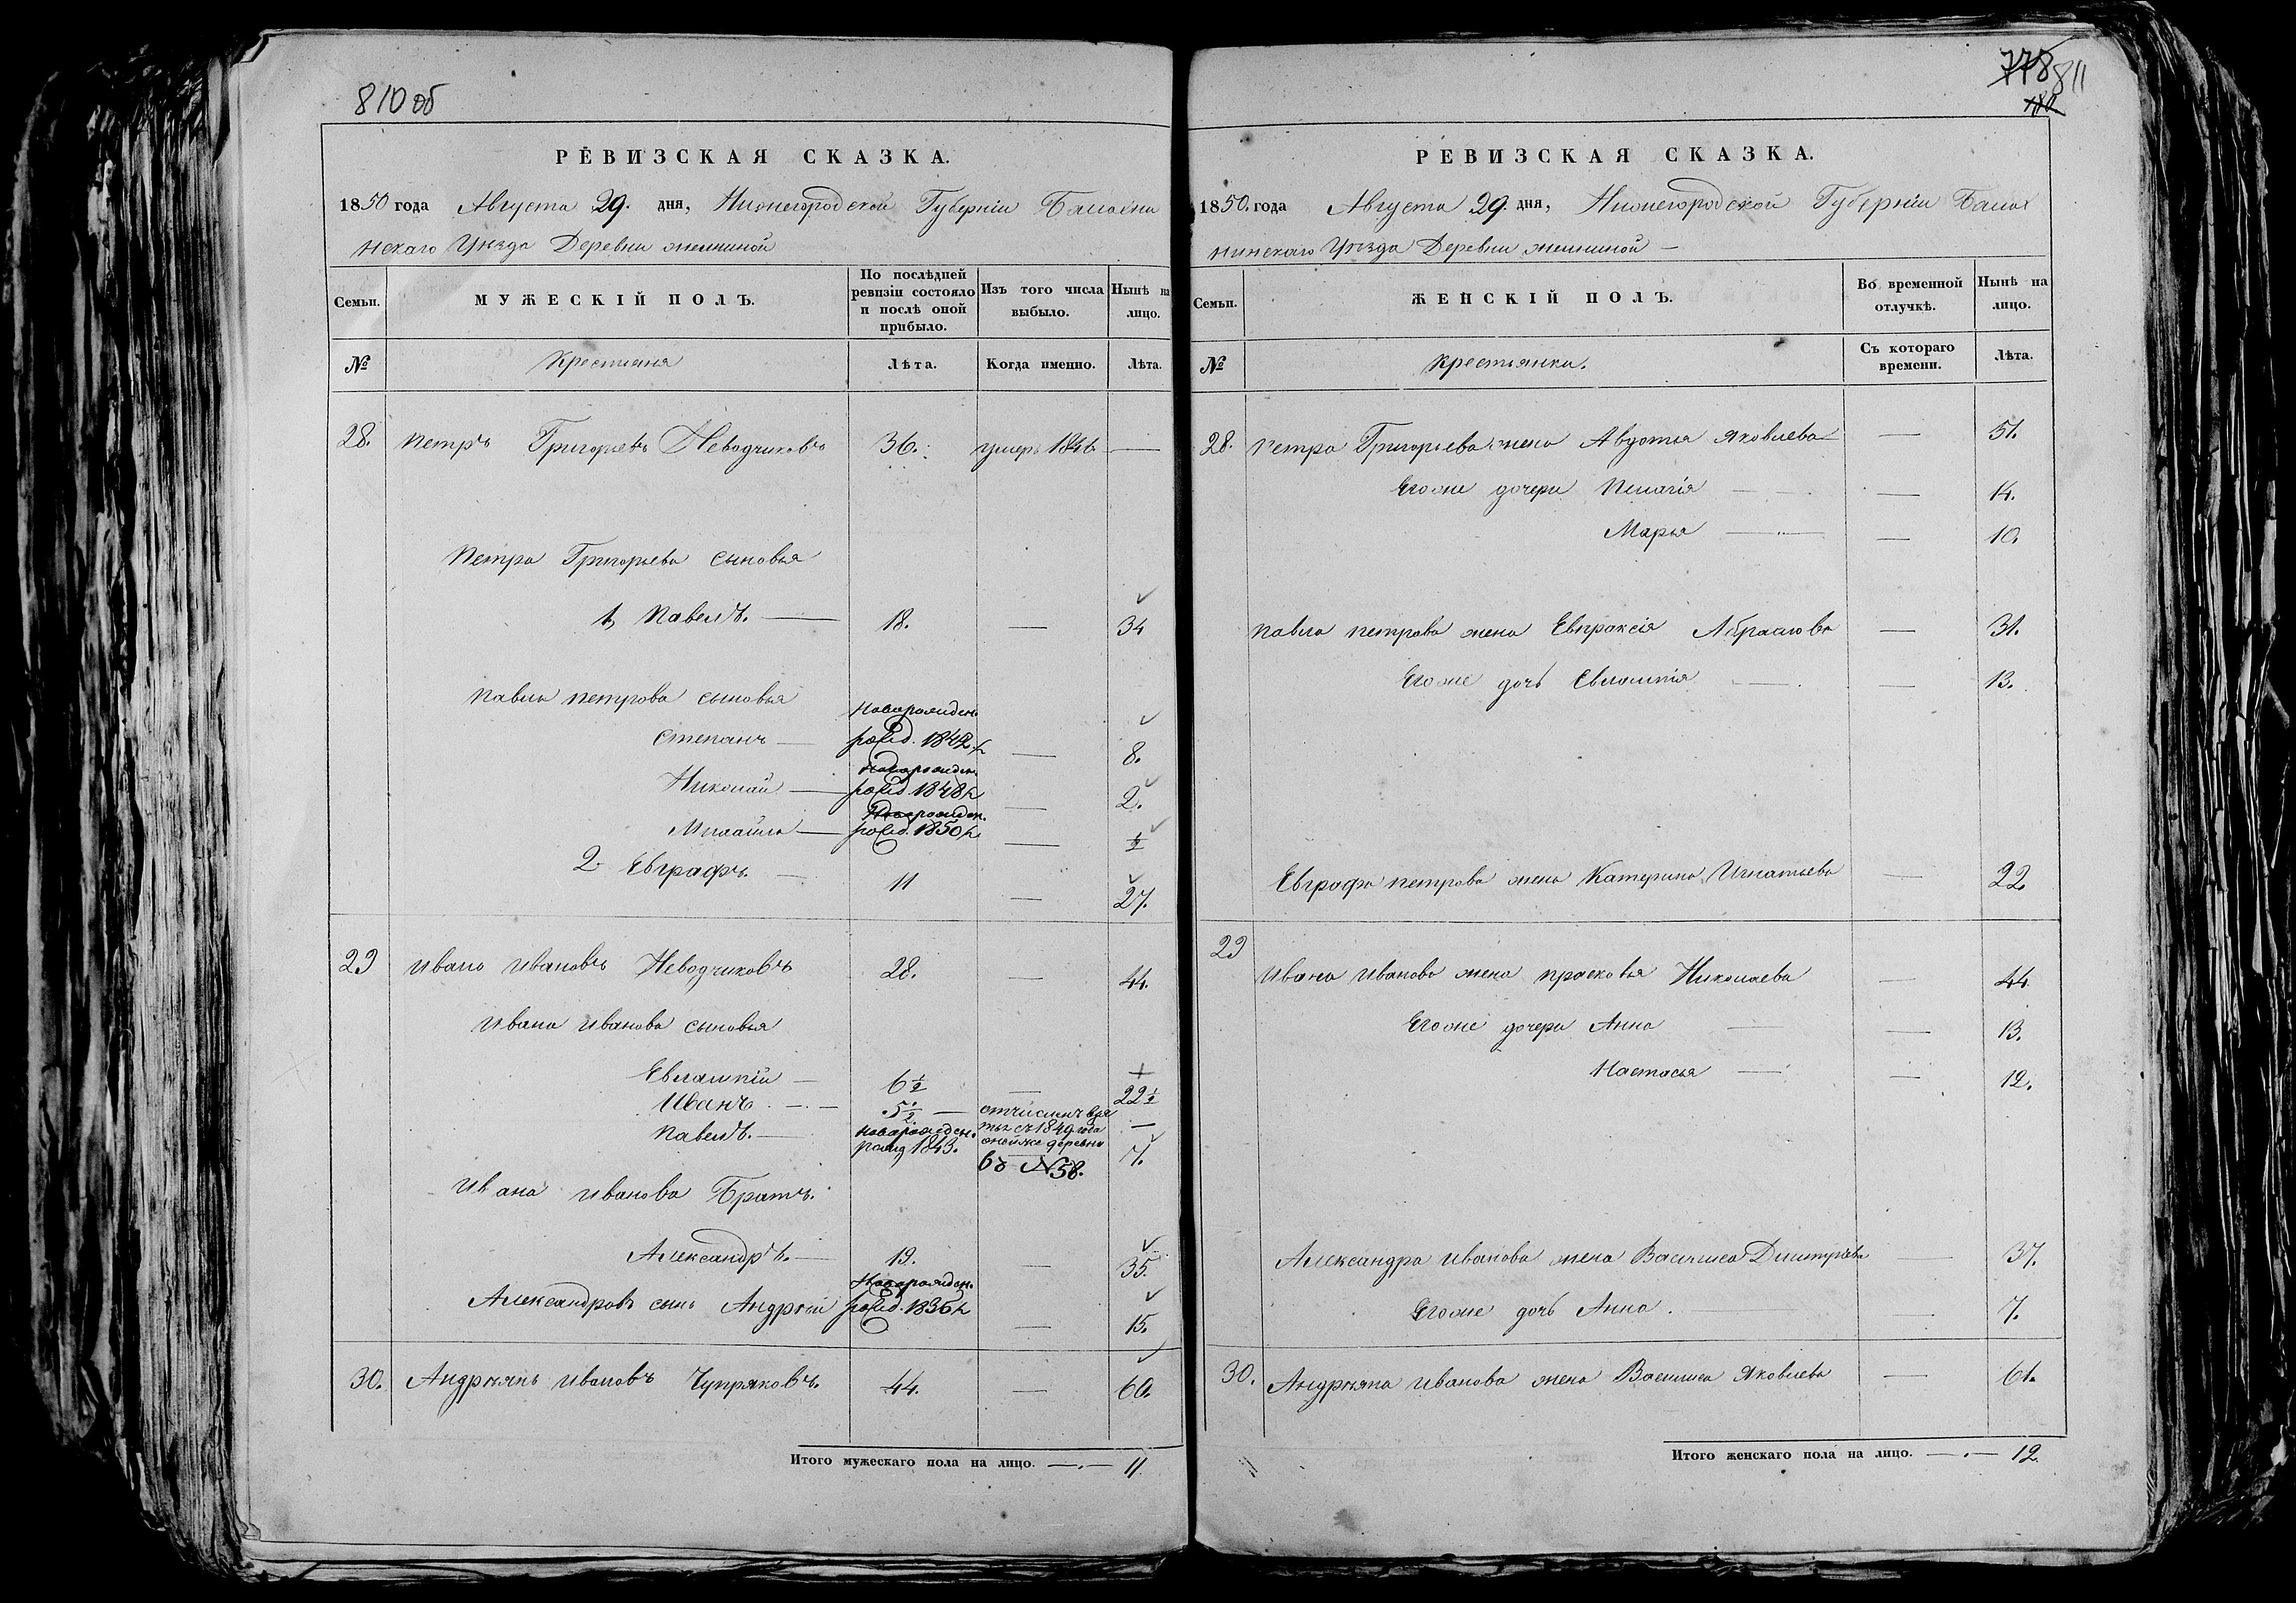 810 об
РЕВИЗСКАЯ СКАЗКА.
1850 года Августа 29. дня, Нижегородской Губерніи Балахни
нскаго Уѣзда Деревни
Семьи. МУЖЕСКІЙ ПОЛЪ. По послѣдней ревизіи состояло и послѣ оной прибыло. Изъ того числа выбыло. Нынѣ на лицо.
№ Крестьяня Лѣта. Когда именно. Лѣта.
28. Петръ Григорьевъ Неводчиковъ 36. умеръ 1846 —
Петра Григорьева сыновья
1, Павелъ. — 18. — 34
Павла Петрова сыновья
Степанъ — новорожден. рожд. 1842 г — 8.
Николай — новорожден. рожд. 1848 г — 2.
Михайло — новорожден. рожд. 1850 г — ½
2. Евграфъ. — 11 — 27.
29 Иванъ Ивановъ Неводчиковъ 28. — 44.
Ивана Иванова сыновья
Евлампій — 6 ½ — 22 ½
Иванъ — 5 ½ — отчисленъ —
Павелъ. — новорожден. рожд 1843. 7.
съ 1849 года
оной же деревни
въ № 58.
Ивана Иванова Братъ.
Александръ. — 19. — 35.
Александровъ сынъ Андрѣй новорожден. рожд. 1835 г — 15.
30. Андріянъ Ивановъ Чупряковъ. 44. — 60.
Итого мужескаго пола на лицо. — 11.
778 811
РЕВИЗСКАЯ СКАЗКА.
1850. года Августа 29. дня, Нижегородской Губерніи Балах
нинскаго Уѣзда Деревни —
Семьи. ЖЕНСКІЙ ПОЛЪ. Во временной отлучкѣ. Нынѣ на лицо.
№ Крестьянки. Съ котораго времени. Лѣта.
28. Петра Григорьева жена Авдотья Яковлева — 51.
Его же дочери Пелагія — 14.
Марья — 10.
Павла Петрова жена Евпраксія Абрамова — 31.
Его же дочь Евлампія — 13.
Евграфа Петрова жена Катерина Игнатьева — 22.
29 Ивана Иванова жена Прасковья Николаева — 44.
Его же дочери Анна — 13.
Настасья — 12.
Александра Иванова жена Василиса Дмитріева — 37.
Его же дочь Анна. — 7.
30. Андріяна Иванова жена Василиса Яковлева — 61.
Итого женскаго пола на лицо. — 12.